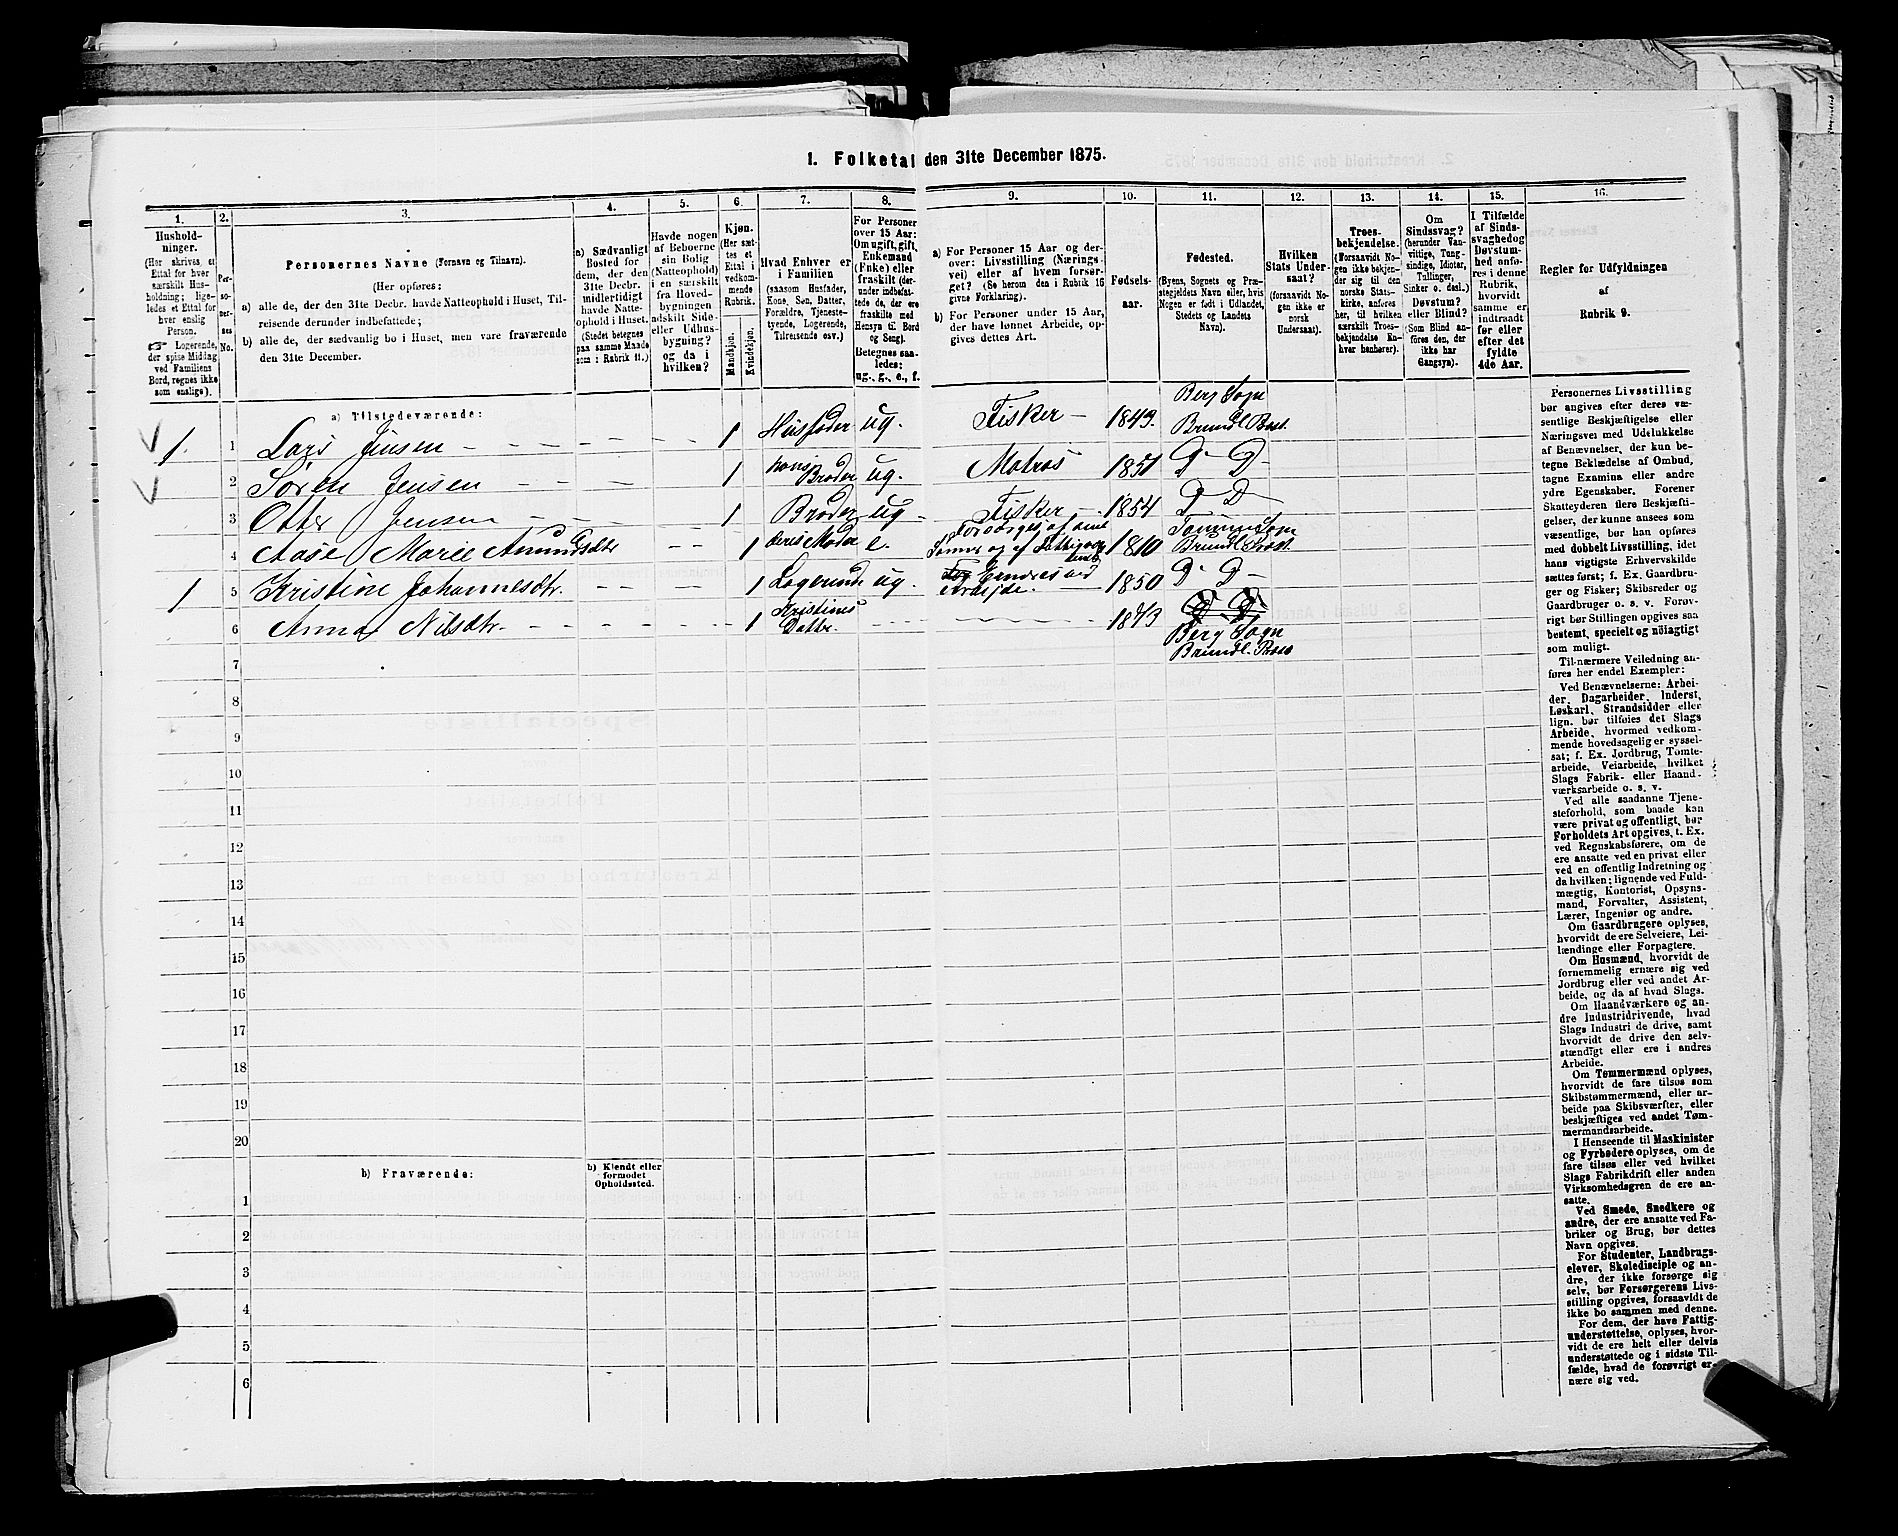 1. Folketal den 31te December 1875.
1.
2.
3.
4.
5.
6.
7.
8.
9.
10.
11.
12.
13.
14.
15.
16.
Hushold-
ninger.
(Her skrives et
Ettal for hver
særskilt Hus-
holdning; lige-
ledes et Ettal for
hver enslig
Person.
☞ Logerende,
der spise Middag
ved Familiens
Bord, regnes ikke
som enslige).
Per-
so-
ner-
nes
No.
Personernes Navne (Fornavn og Tilnavn).
(Her opføres:
a) alle de, der den 31te Decbr. havde Natteophold i Huset, Til-
reisende derunder indbefattede;
b) alle de, der sædvanlig bo i Huset, men vare fraværende
den 31te December.
a) Sædvanligt
Bosted for
dem, der den
31te Decbr.
midlertidigt
havde Natte-
ophold i Huset.
(Stedet betegnes
paa samme Maade
som i Rubrik 11.)
Havde nogen
af Beboerne
sin Bolig
(Natteophold)
i en særskilt
fra Hoved-
bygningen
adskilt Side-
eller Udhus-
bygning?
og da i
hvilken?
Kjøn.
(Her sæt-
tes et
Ettal i
vedkom-
mende
Rubrik.
Mandkjøn.
Kvindekjøn.
Hvad Enhver er
i Familien
(saasom Husfader,
Kone, Søn, Datter,
Forældre, Tjeneste-
tyende, Logerende,
Tilreisende osv.)
For Personer
over 15 Aar:
Om ugift, gift,
Enkemand
(Enke) eller
fraskilt (der-
under indbefat-
tede de, der ere
fraskilte med
Hensyn til Bord
og Seng).
Betegnes saa-
ledes:
ug., g., e., f.
a) For Personer 15 Aar og der-
over: Livsstilling (Nærings-
vei) eller af hvem forsør-
get? (Se herom den i Rubrik 16
givne Forklaring).
b) For Personer under 15 Aar,
der have lønnet Arbeide, op-
gives dettes Art.
Fødsels-
aar.
Fødested.
(Byens, Sognets og Præ-
stegjeldets Navn eller, hvis
Nogen er født i Udlandet,
Stedets og Landets
Navn).
Hvilken
Stats Under-
saat?
(forsaavidt No-
gen ikke er
norsk
Undersaat).
Troes-
bekjendelse.
(Forsaavidt No-
gen ikke bekjen-
der sig til den
norske Stats-
kirke, anføres
her, til hvilken
særskilt Troes-
bekjendelse En-
hver henhører).
Om
Sindssvag?
(herunder Van-
vittige, Tung-
sindige, Idioter,
Tullinger,
Sinker o. desl.)
Døvstum?
eller Blind?
(Som Blind an-
føres den, der
ikke har
Gangsyn).
I Tilfælde
af Sinds-
svaghed og
Døvstum-
hed anfø-
res i denne
Rubrik,
hvorvidt
samme er
indtraadt
før eller
efter det
fyldte
4de Aar.
Regler for Udfyldningen
af
Rubrik 9.
a) Tilstedeværende:
1. 1 Lars Jensen 1 Husfader ug. Fisker 1843. Berg Sogn
Brundl. Præst.
2 Søren Jensen 1 hans Broder ug. Matros 1851 D D
3 Otter Jensen 1 Broder ug Fisker 1854 D D
4 Aase Marie Amundsdtr 1 deres Moder e. Forsørges af sine
Sønner og af Fattigvæs. 1810 Tanum Sogn
Brundl. Præst.
1 5 Kristine Johannesdtr. 1 Logerende ug. Ernæres ved
Arbejde. 1850 D D
6 Anna Nilsdtr. 1 Kristines
Datter. 1873 D D
Berg Sogn
Brundl. Præst
7
8
9
10
11
12
13
14
15
16
17
18
19
20
b) Fraværende:
b) Kjendt eller
formodet
Opholdssted.
1
2
3
4
5
6
Personernes Livsstilling
bør angives efter deres væ-
sentlige Beskjæftigelse eller
Næringsvei med Udelukkelse
af Benævnelser, der kun be-
tegne Beklædelse af Ombud,
tagne Examina eller andre
ydre Egenskaber. Forener
Skatteyderen flere Beskjæfti-
gelser, der kunne ansees som
væsentlige, bør han opføres
med dobbelt Livsstilling, idet
hans vigtigste Erhvervskilde
sættes først; f. Ex. Gaardbru-
ger og Fisker; Skibsreder og
Gaardbruger o. s. v. Forøv-
rigt bør Stillingen opgives saa
bestemt, specielt og nöiagtigt
som muligt.
Til nærmere Veiledning an-
føres her endel Exempler:
Ved Benævnelserne: Arbei-
der, Dagarbeider, Inderst,
Løskarl, Strandsidder eller
lign. bør tilføies det Slags
Arbeide, hvormed vedkom-
mende hovedsagelig er syssel-
sat; f. Ex. Jordbrug, Tømte-
arbeide, Veiarbeide, hvilket
Slags Fabrik- eller Haand-
værksarbeide o. s. v.
Ved alle saadanne Tjene-
steforhold, som baade kan
være privat og offentligt, bør
Forholdets Art opgives, t. Ex.
ved Regnskabsførere, om de
ere ansatte ved en privat eller
ved en offentlig Indretning og
da hvilken; lignende ved Fuld-
mægtig, Kontorist, Opsyns-
mand, Forvalter, Assistent,
Lærer, Ingeniør og andre.
Om Gaardbrugere oplyses,
hvorvidt de ere Selveiere, Lei-
lændinge eller Forpagtere.
Om Husmænd, hvorvidt de
fornemmelig ernære sig ved
Jordbrug eller ved andet Ar-
beide, og da af hvad Slags.
Om Haandværkere og an-
dre Industridrivende, hvad
Slags Industri de drive, samt
hvorvidt de drive den selv-
stændigt eller ere i andres
Arbeide.
Om Tømmermænd oplyses,
hvorvidt de fare tilsøs som
Skibstømmermænd, eller ar-
beide paa Skibsværfter, eller
beskjæftiges ved andet Tøm-
mermandsarbeide.
I Henseende til Maskinister
og Fyrbødere oplyses, om de
fare tilsøs eller ved hvilket
Slags Fabrikdrift eller anden
Virksomhedsgren de ere an-
satte.
Ved Smede, Snedkere og
andre, der ere ansatte ved Fa-
briker og Brug, bør dettes
Navn opgives.
For Studenter, Landbrugs-
elever, Skoledisciple og an-
dre, der ikke forsørge sig
selv, bør Forsørgerens Livs-
stilling opgives, forsaavidt de
ikke bo sammen med denne.
For dem, der have Fattig-
understøttelse, oplyses, hvor-
vidt de ere helt eller delvis
understøttede og i sidste Til-
fælde, hvad de forøvrigt er-
nære sig ved.